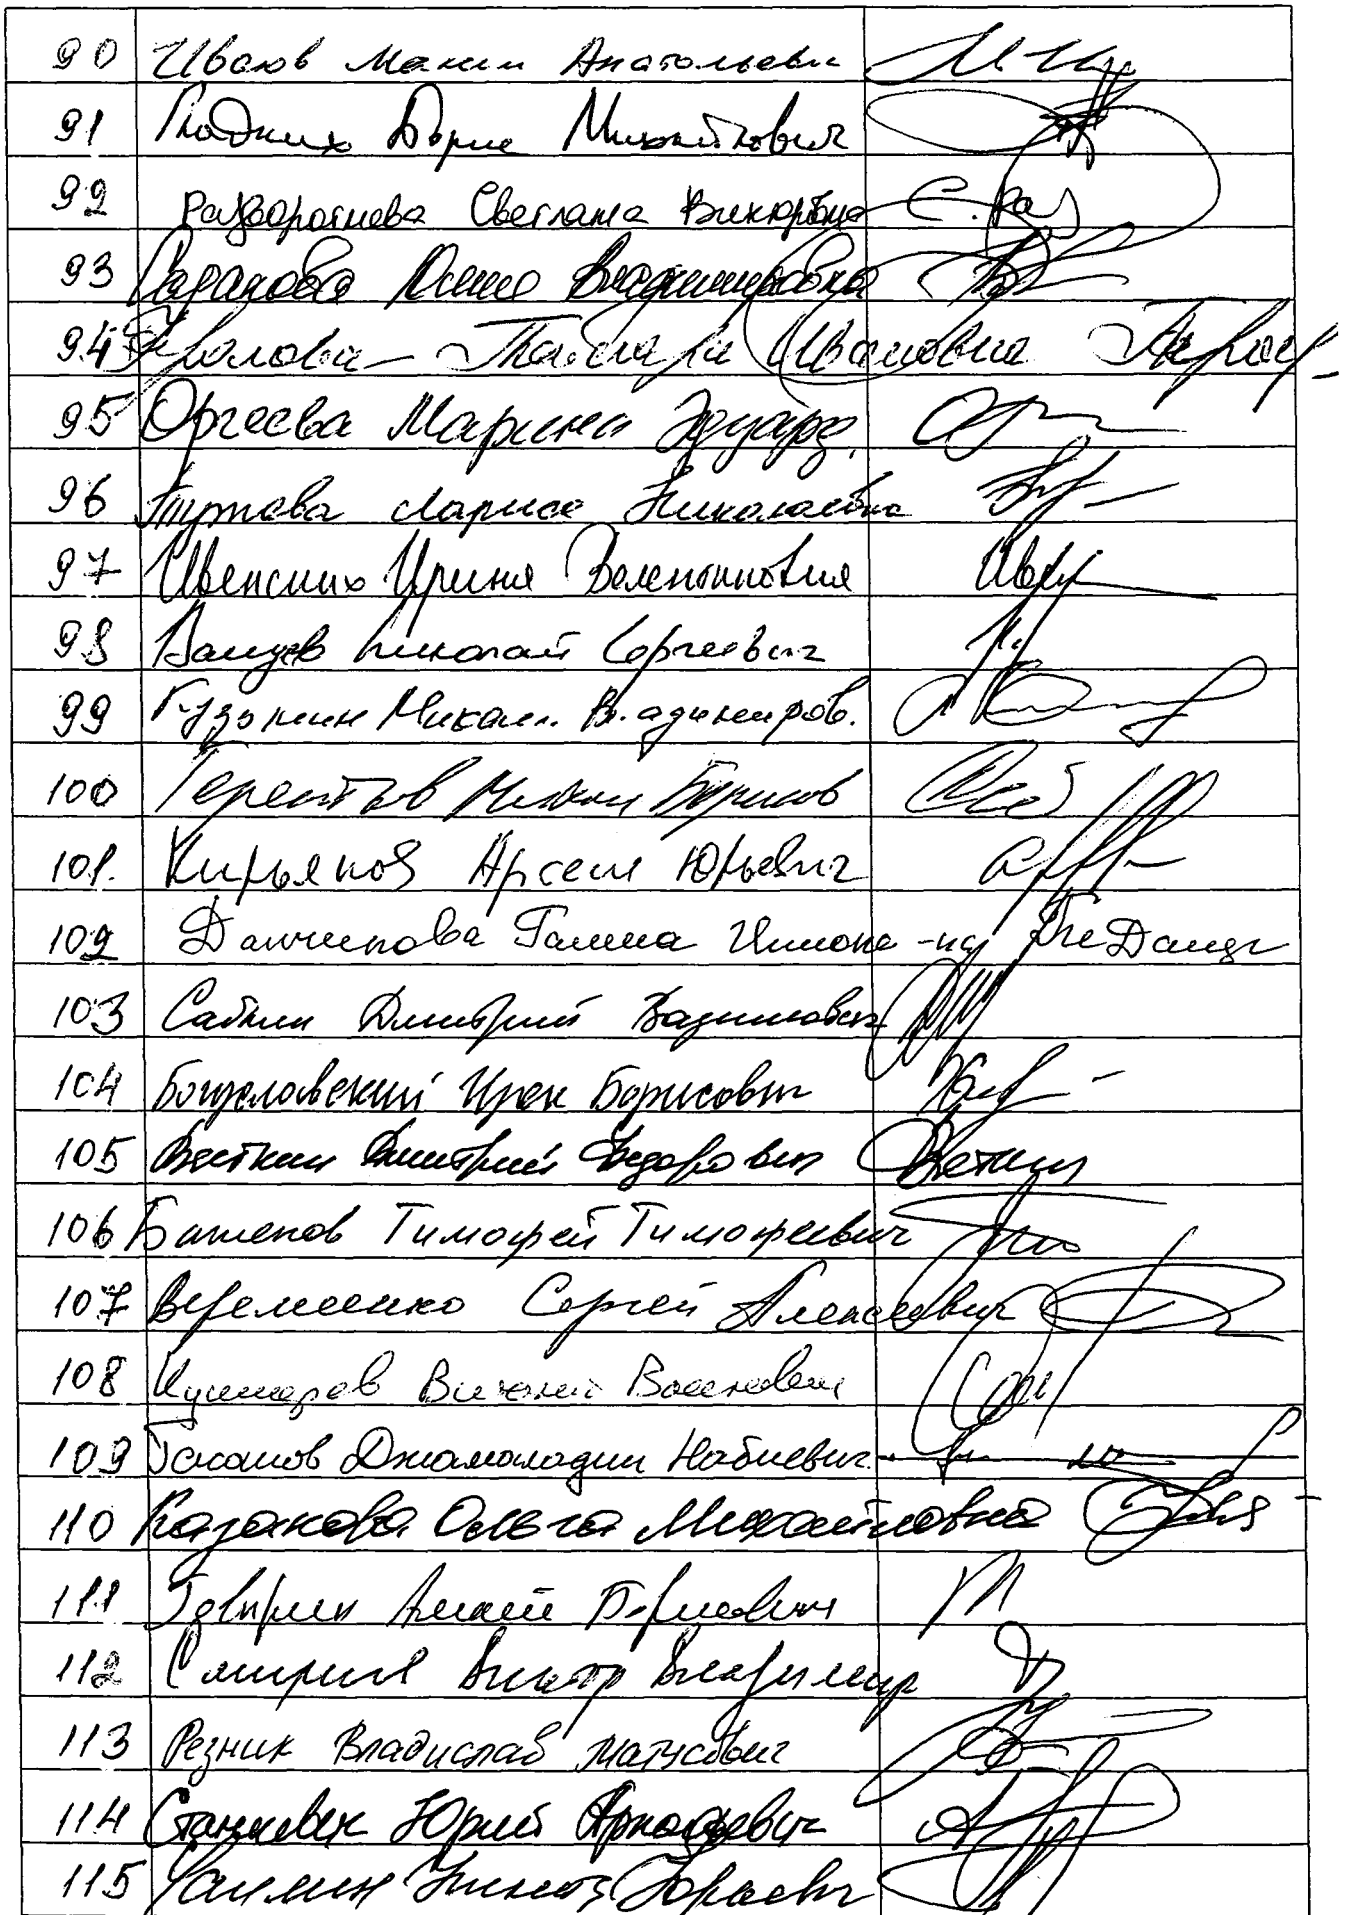 90 Иванов Максим Анатольеви
91 Гладких Борис Михайлович
92 Разворотнева Светлана Викторовна
93 Владимировна
94 Фролова Тамара Ивановна
95 Оргеева Марина Эдуард.
96 Тутова Лариса Николаевна
97 Ивенских Ирина Валентиновна
98 Валуев Николай Сергеевич
99 Кузьмин Михаил Владимиров.
100 Терентьев Михаил Борисов
101. Кирьянов Арсен Юрьевич
102 Данчикова Галина Инноке-на
103 Саблин Дмитрий Вадимович
104 Богуславский Ирек Борисович
105 Вяткин Дмитрий Федорович
106 Баженов Тимофей Тимофеевич
107 Веремеенко Сергей Алексеевич
108
109 Гасанов Джамаладин Набиевич
110 Казакова Ольга Михайловна
111 Гаврилин
112 Виктор Владимир
113 Резник Владислав Матусович
114 Станкевич Юрий Аркадьевич
115 Чаплин Никита Юрьевич